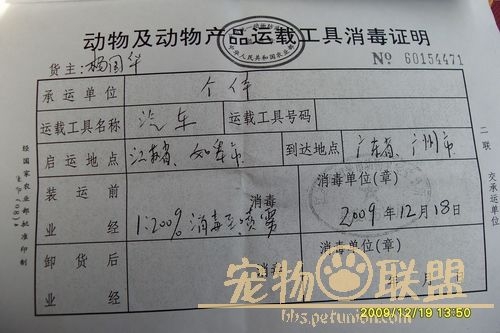 动物及动物产品运载工具消毒证明
中华人民共和国农业部
货主：杨国华
№ 60154471
承运单位 个体
运载工具名称 汽车 运载工具号码
启运地点 江苏省、如皋市 到达地点 广东省、广州市
装运前 消毒 消毒单位(章)
业经 1:200% 消毒 喷雾 2009年12月18日
卸货后 消毒 消毒单位(章)
业经 年 月 日
经国家农业部批准印制
二联 交承运单位
宠物联盟
bbs.petunion.com
2009/12/19 13:50